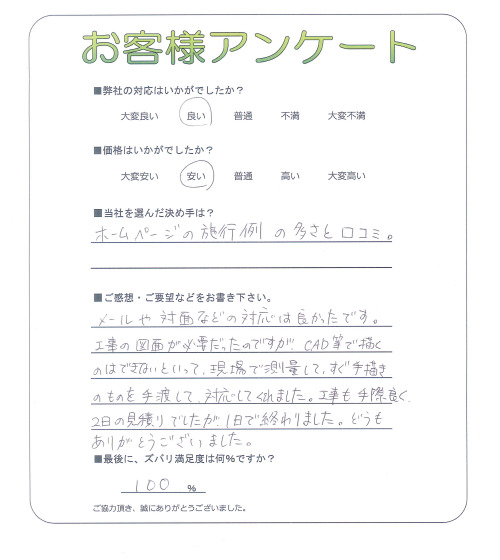 お客様アンケート
■弊社の対応はいかがでしたか？
大変良い 良い 普通 不満 大変不満
■価格はいかがでしたか？
大変安い 安い 普通 高い 大変高い
■当社を選んだ決め手は？
ホームページの施行例の多さと口コミ。
■ご感想・ご要望などをお書き下さい。
メールや対面などの対応は良かったです。
工事の図面が必要だったのですが、CAD等で描く
のはできないといって、現場で測量して、すぐ手描き
のものを手渡して、対応してくれました。工事も手際良く、
2日の見積りでしたが、1日で終わりました。どうも
ありがとうございました。
■最後に、ズバリ満足度は何%ですか？
100 %
ご協力頂き、誠にありがとうございました。